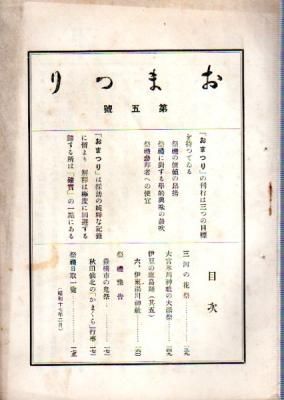 おまつり
第五號
『おまつり』の刊行は三つの目標
を持つてゐる
祭禮の價値の昂揚
祭禮に對する學的興味の鼓吹
祭禮參拜者への便宜
『おまつり』は採訪の純粹な記錄
に價より 解釋は極度に回避する
歸する所は『確實』の一點にある
目次
三河の花祭
大宮氷川神社の大湯祭
伊豆の鹿島踊（其五）
六、伊東湯川神社
祭禮豫告
豊橋市の鬼祭
秋田仙北の『かまくら』行事
祭禮日取一覽
（昭和十三年二月）